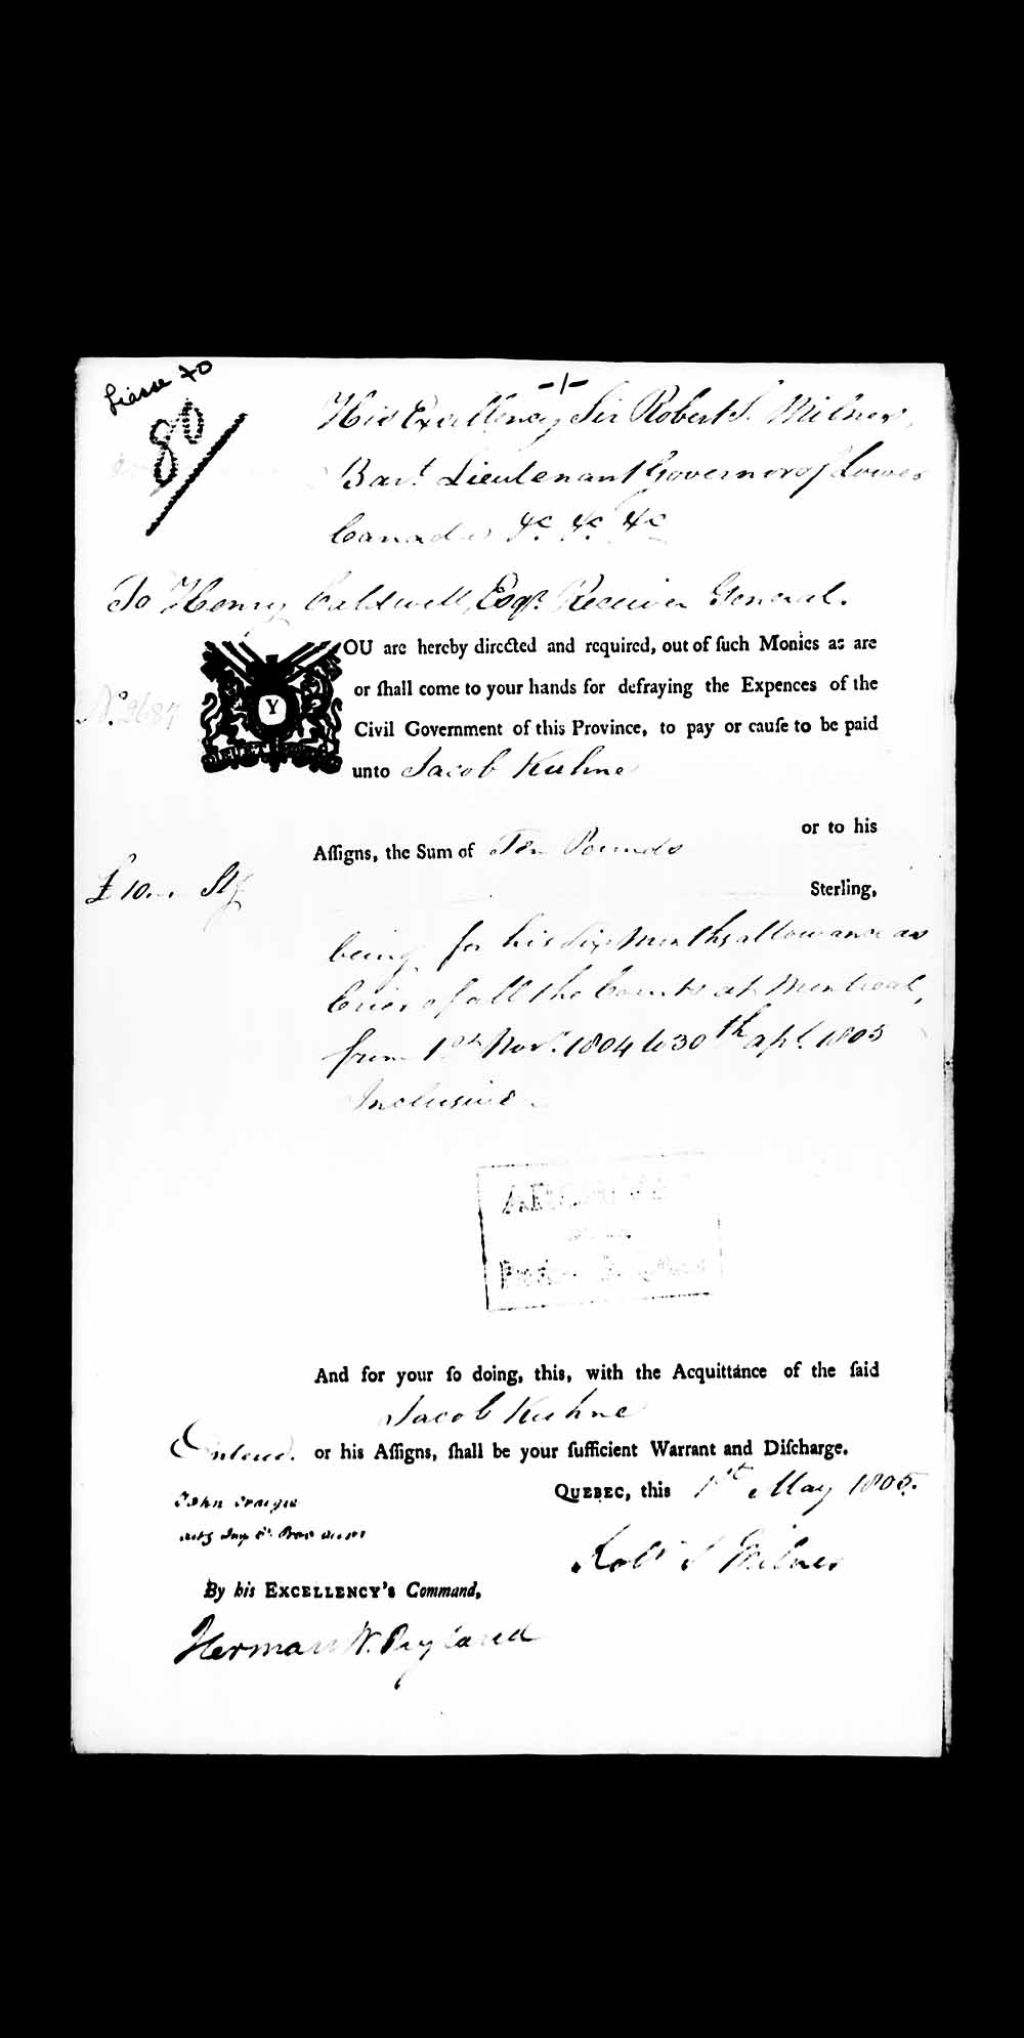 -1-
Liasse 70
80
His Excellency Sir Robert S. Milnes,
Bart. Lieutenant Governor of Lower
Canada &c. &c. &c.
To Henry Caldwell, Esqr. Receiver General.
YOU are hereby directed and required, out of ſuch Monies as are
or ſhall come to your hands for defraying the Expences of the
Civil Government of this Province, to pay or cauſe to be paid
unto Jacob Kuhne
or to his
Aſſigns, the Sum of Ten Pounds
£10.. Stg
Sterling,
being for his Six Months allowance as
Crier of all the Courts at Montreal,
from 1st Novr. 1804 to 30th apl. 1805
Inclusive.
And for your ſo doing, this, with the Acquittance of the ſaid
Jacob Kuhne
Entered. or his Aſſigns, ſhall be your ſufficient Warrant and Diſcharge.
QUEBEC, this 1st May 1805.
John Craigie
Robt S Milnes
By his EXCELLENCY's Command,
Herman W. Ryland